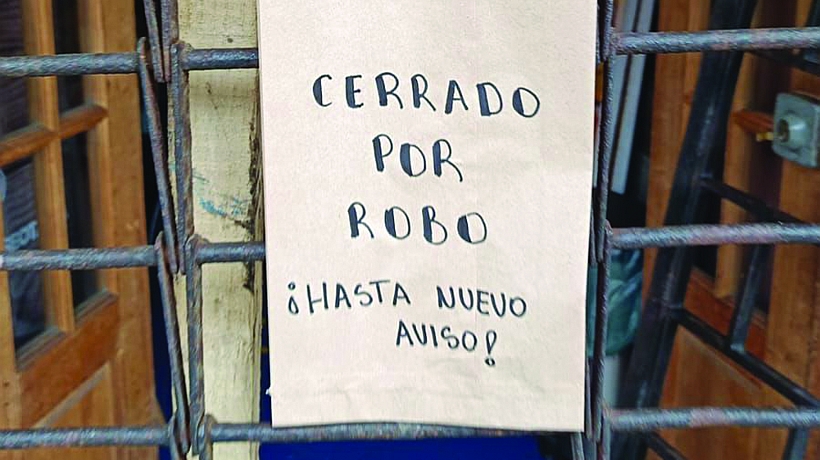 CERRADO
POR
ROBO
¡HASTA NUEVO
AVISO!